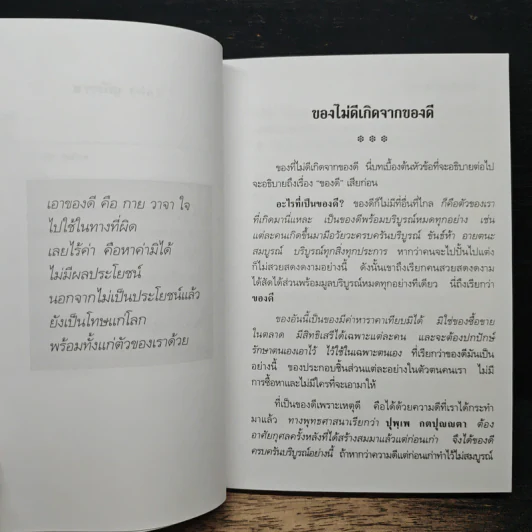 เอาของดี คือ กาย วาจา ใจ
ไปใช้ในทางที่ผิด
เลยไร้ค่า คือหาค่ามิได้
ไม่มีผลประโยชน์
นอกจากไม่เป็นประโยชน์แล้ว
ยังเป็นโทษแก่โลก
พร้อมทั้งแก่ตัวของเราด้วย
ของไม่ดีเกิดจากของดี
ของที่ไม่ดีเกิดจากของดี นี่บทเบื้องต้นหัวข้อที่จะอธิบายต่อไป
จะอธิบายถึงเรื่อง "ของดี" เสียก่อน
อะไรที่เป็นของดี? ของดีก็ไม่มีที่อื่นที่ไกล ก็คือตัวของเรา
ที่เกิดมานี่แหละ เป็นของดีพร้อมบริบูรณ์หมดทุกอย่าง เช่น
แต่ละคนเกิดขึ้นมามีอวัยวะครบครันบริบูรณ์ ขันธ์ห้า อายตนะ
สมบูรณ์ บริบูรณ์ทุกสิ่งทุกประการ หากว่าคนจะไปปั้นไปแต่ง
ก็ไม่สวยสดงดงามอย่างนี้ ดังนั้นเขาถึงเรียกคนสวยสดงดงาม
ได้สัดได้ส่วนพร้อมมูลบริบูรณ์หมดทุกอย่างทีเดียว นี่ถึงเรียกว่า
ของดี
ของอันนี้เป็นของมีค่าหาราคาเทียบมิได้ มิใช่ของซื้อขาย
ในตลาด มีสิทธิเสรีได้เฉพาะแต่ละคน และจะต้องปกปักษ์
รักษาตนเองเอาไว้ ไว้ใช้ในเฉพาะตนเอง ที่เรียกว่าของดีมันเป็น
อย่างนี้ ของประกอบชิ้นส่วนแต่ละอย่างในตัวตนคนเรา ไม่มี
การซื้อหาและไม่มีใครที่จะเอามาให้
ที่เป็นของดีเพราะเหตุดี คือได้ด้วยความดีที่เราได้กระทำ
มาแล้ว ทางพุทธศาสนาเรียกว่า ปุพฺเพ กตปุญฺญตา ต้อง
อาศัยกุศลครั้งหลังที่ได้สร้างสมมาแล้วแต่ก่อนเก่า จึงได้ของดี
ครบครันบริบูรณ์อย่างนี้ ถ้าหากว่าความดีแต่ก่อนเก่าทำไว้ไม่สมบูรณ์